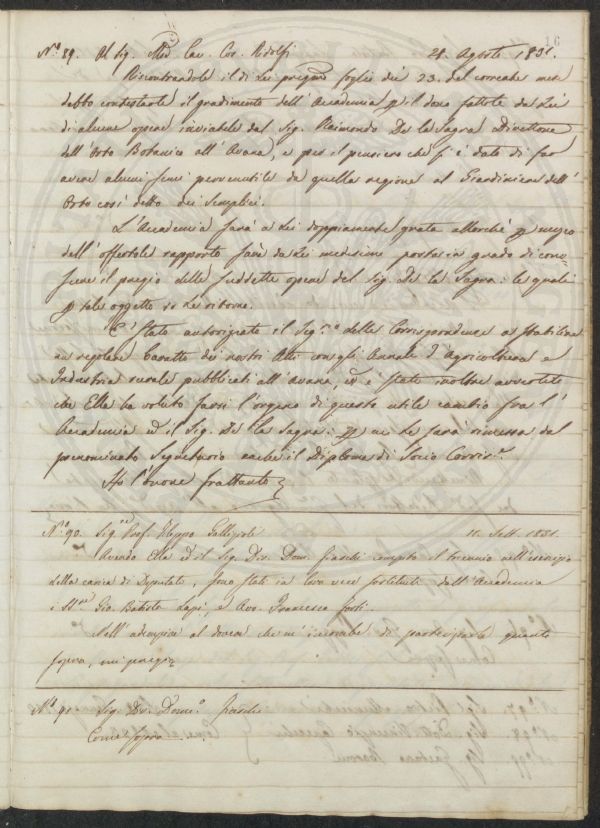 16
N.º 89. Al Sig. March. Cav. Cos. Ridolfi 28. Agosto 1831.
Riscontrandole il di Lei pregmo foglio dei 23. del corrente mese
debbo contestarle il gradimento dell'Accademia p il dono fattole da Lei
di alcune opere inviatele dal Sig. Raimondo De la Sagra Direttore
dell'Orto Botanico all'Avana, e per il pensiero che si è dato di far
avere alcuni semi pervenutile da quella regione al Giardiniere dell'
Orto così detto dei Semplici.
L'Accademia sarà a Lei doppiamente grata allorchè p mezzo
dell'offertole rapporto sarà da Lei medesimo posta in grado di cono
scere il pregio delle suddette opere del Sig. De la Sagra: le quali
p tale oggetto io Le ritorno.
È stato autorizzato il Seg.rio delle Corrispondenze a stabilire
un regolare baratto dei nostri Atti con gli Annali d'Agricoltura e
Industria rurale pubblicati all'Avana, ed è stato inoltre avvertito
che Ella ha voluto farsi l'organo di questo utile cambio fra l'
Accademia e il Sig. De la Sagra: p cui Le sarà rimesso dal
prenominato Segretario anche il Diploma di Socio Corris.e
Ho l'onore frattanto
N.º 90. Sig. Prof. Filippo Gallizioli 11. Sett. 1831.
Avendo Ella ed il Sig. Dre. Dom. Fraschi compito il triennio nell'esercizio
della carica di Deputati, sono stati in loro vece sostituiti dall'Accademia
i SS.ri Gio. Batista Lapi, e Avv. Francesco Forti.
Nell'adempire al dovere che m'incombe di parteciparle quanto
sopra, mi pregio
N.º 91. Sig. Dre. Dom.º Fraschi
Come sopra